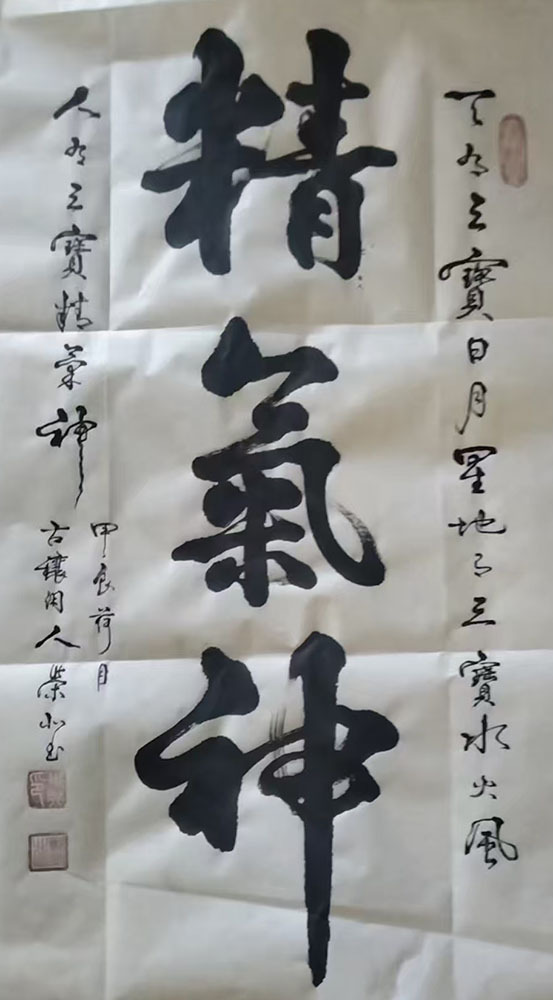 天有三寶日月星地有三寶水火風
精氣神
人有三寶精氣神
甲辰荷月
古穰閑人